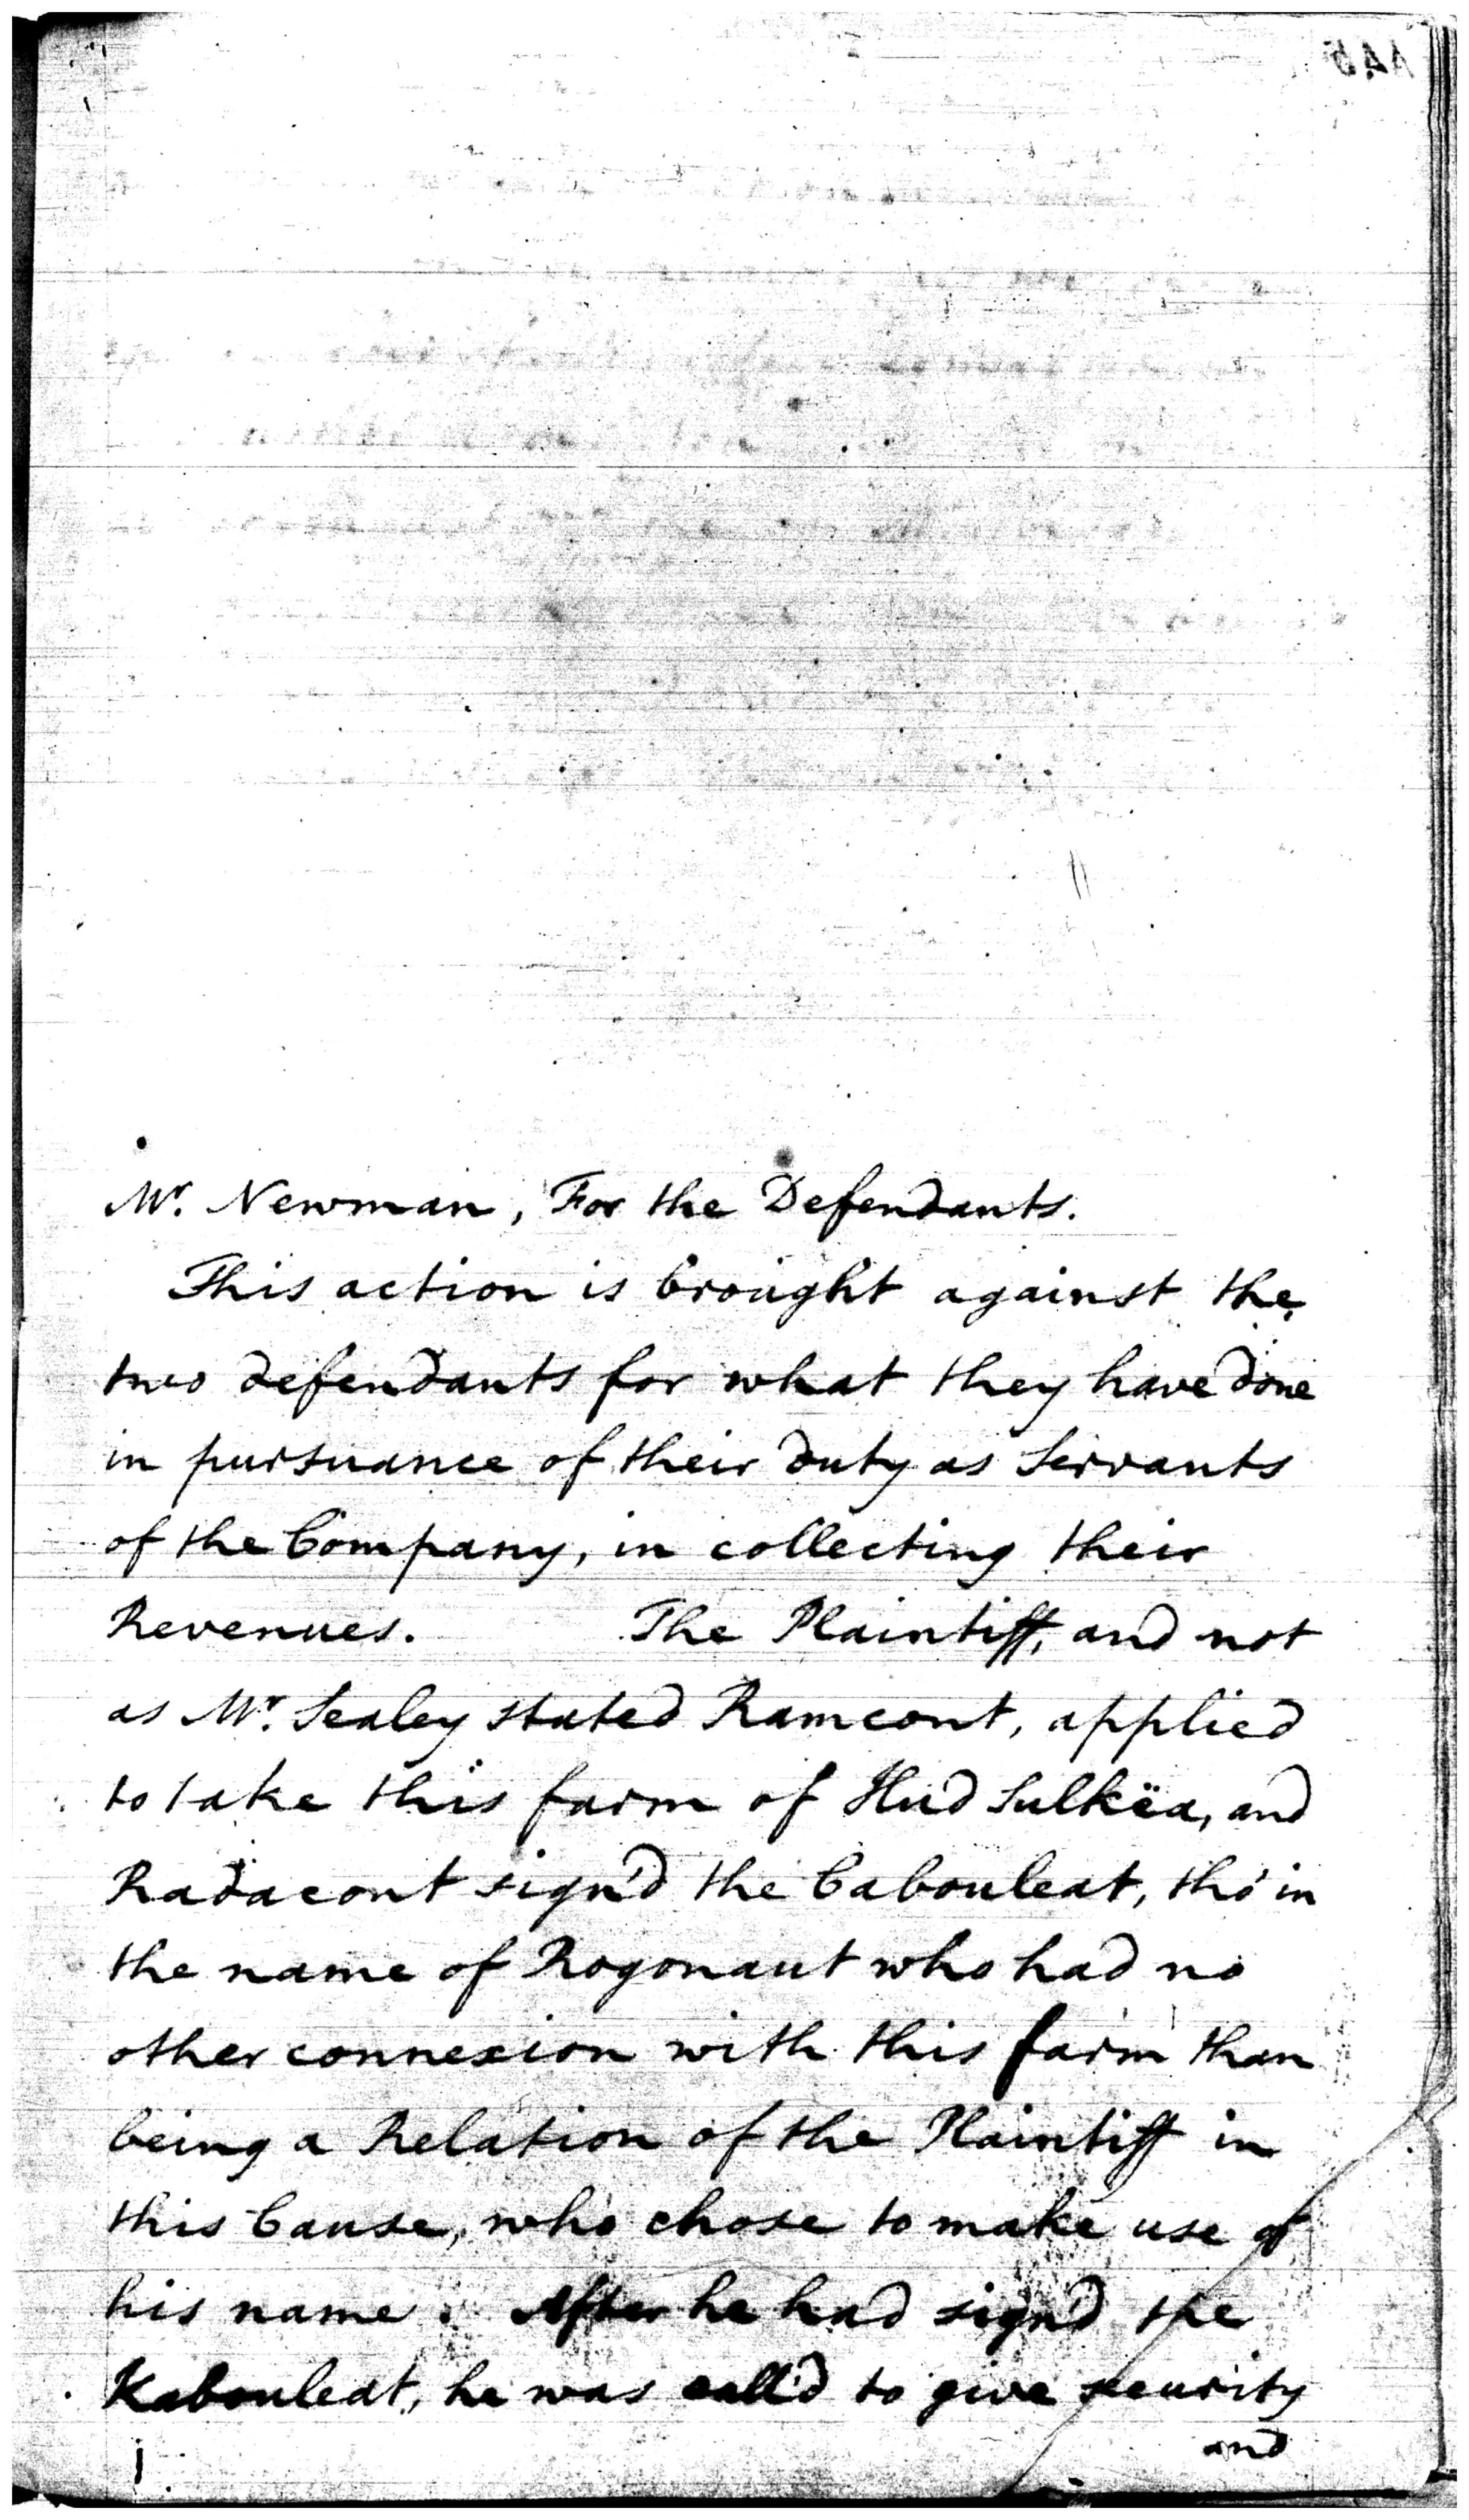 Mr. Newman, For the Defendants.
This action is brought against the
two defendants for what they have done
in pursuance of their duty as Servants
of the Company, in collecting their
Revenues. The Plaintiff, and not
as Mr. Sealey stated Ramcont, applied
to take this farm of Hud Sulkëa, and
Radacont sign'd the Cabouleat, tho' in
the name of Rogonaut who had no
other connexion with this farm than
being a Relation of the Plaintiff in
this Cause, who chose to make use of
his name. After he had sign'd the
Kabouleat, he was call'd to give security
and